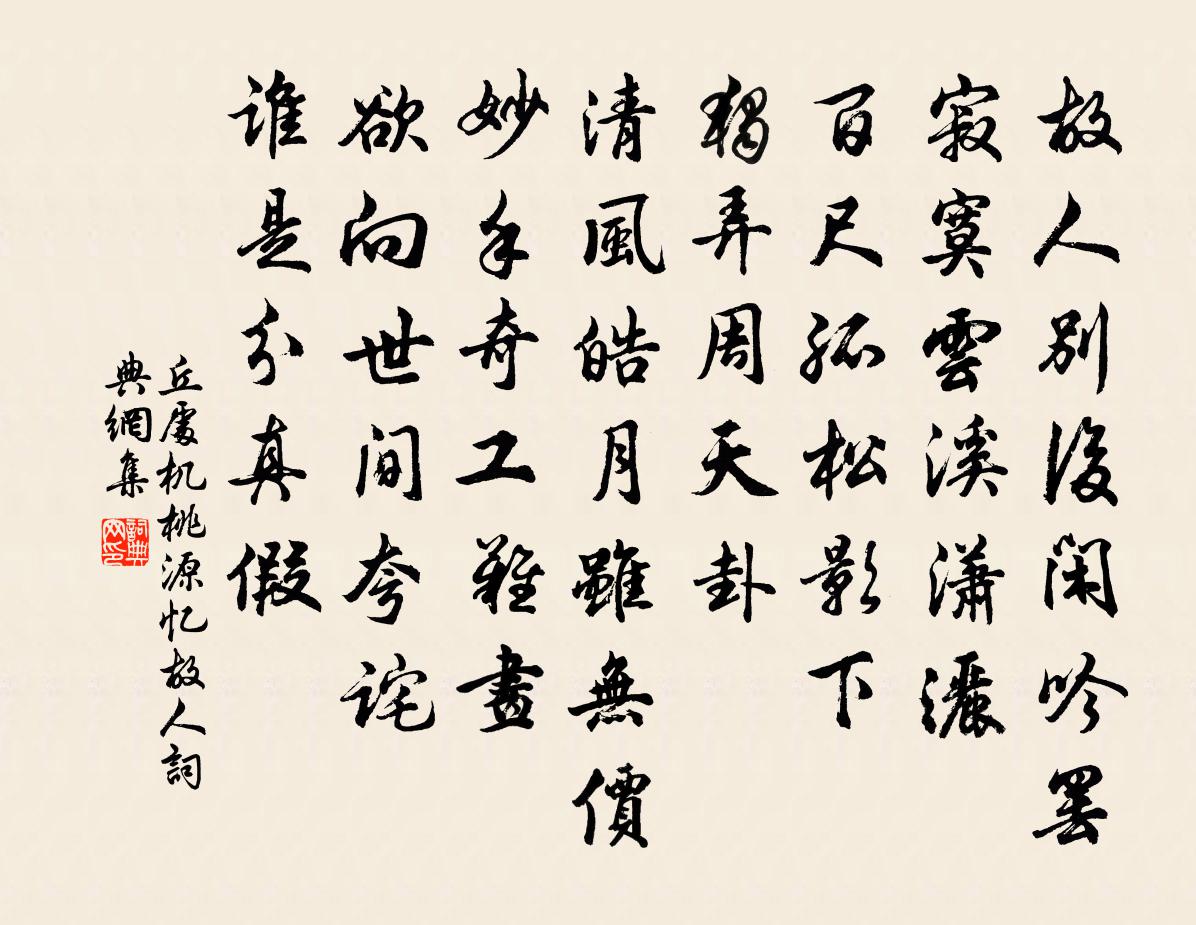 故人別後閑吟罢
寂寞雲溪瀟灑
百尺孤松影下
獨弄周天卦
清風皓月雖無價
妙手奇工難畫
欲向世間夸詫
谁是分真假
丘處机桃源忆故人詞
典網集
詞典網印